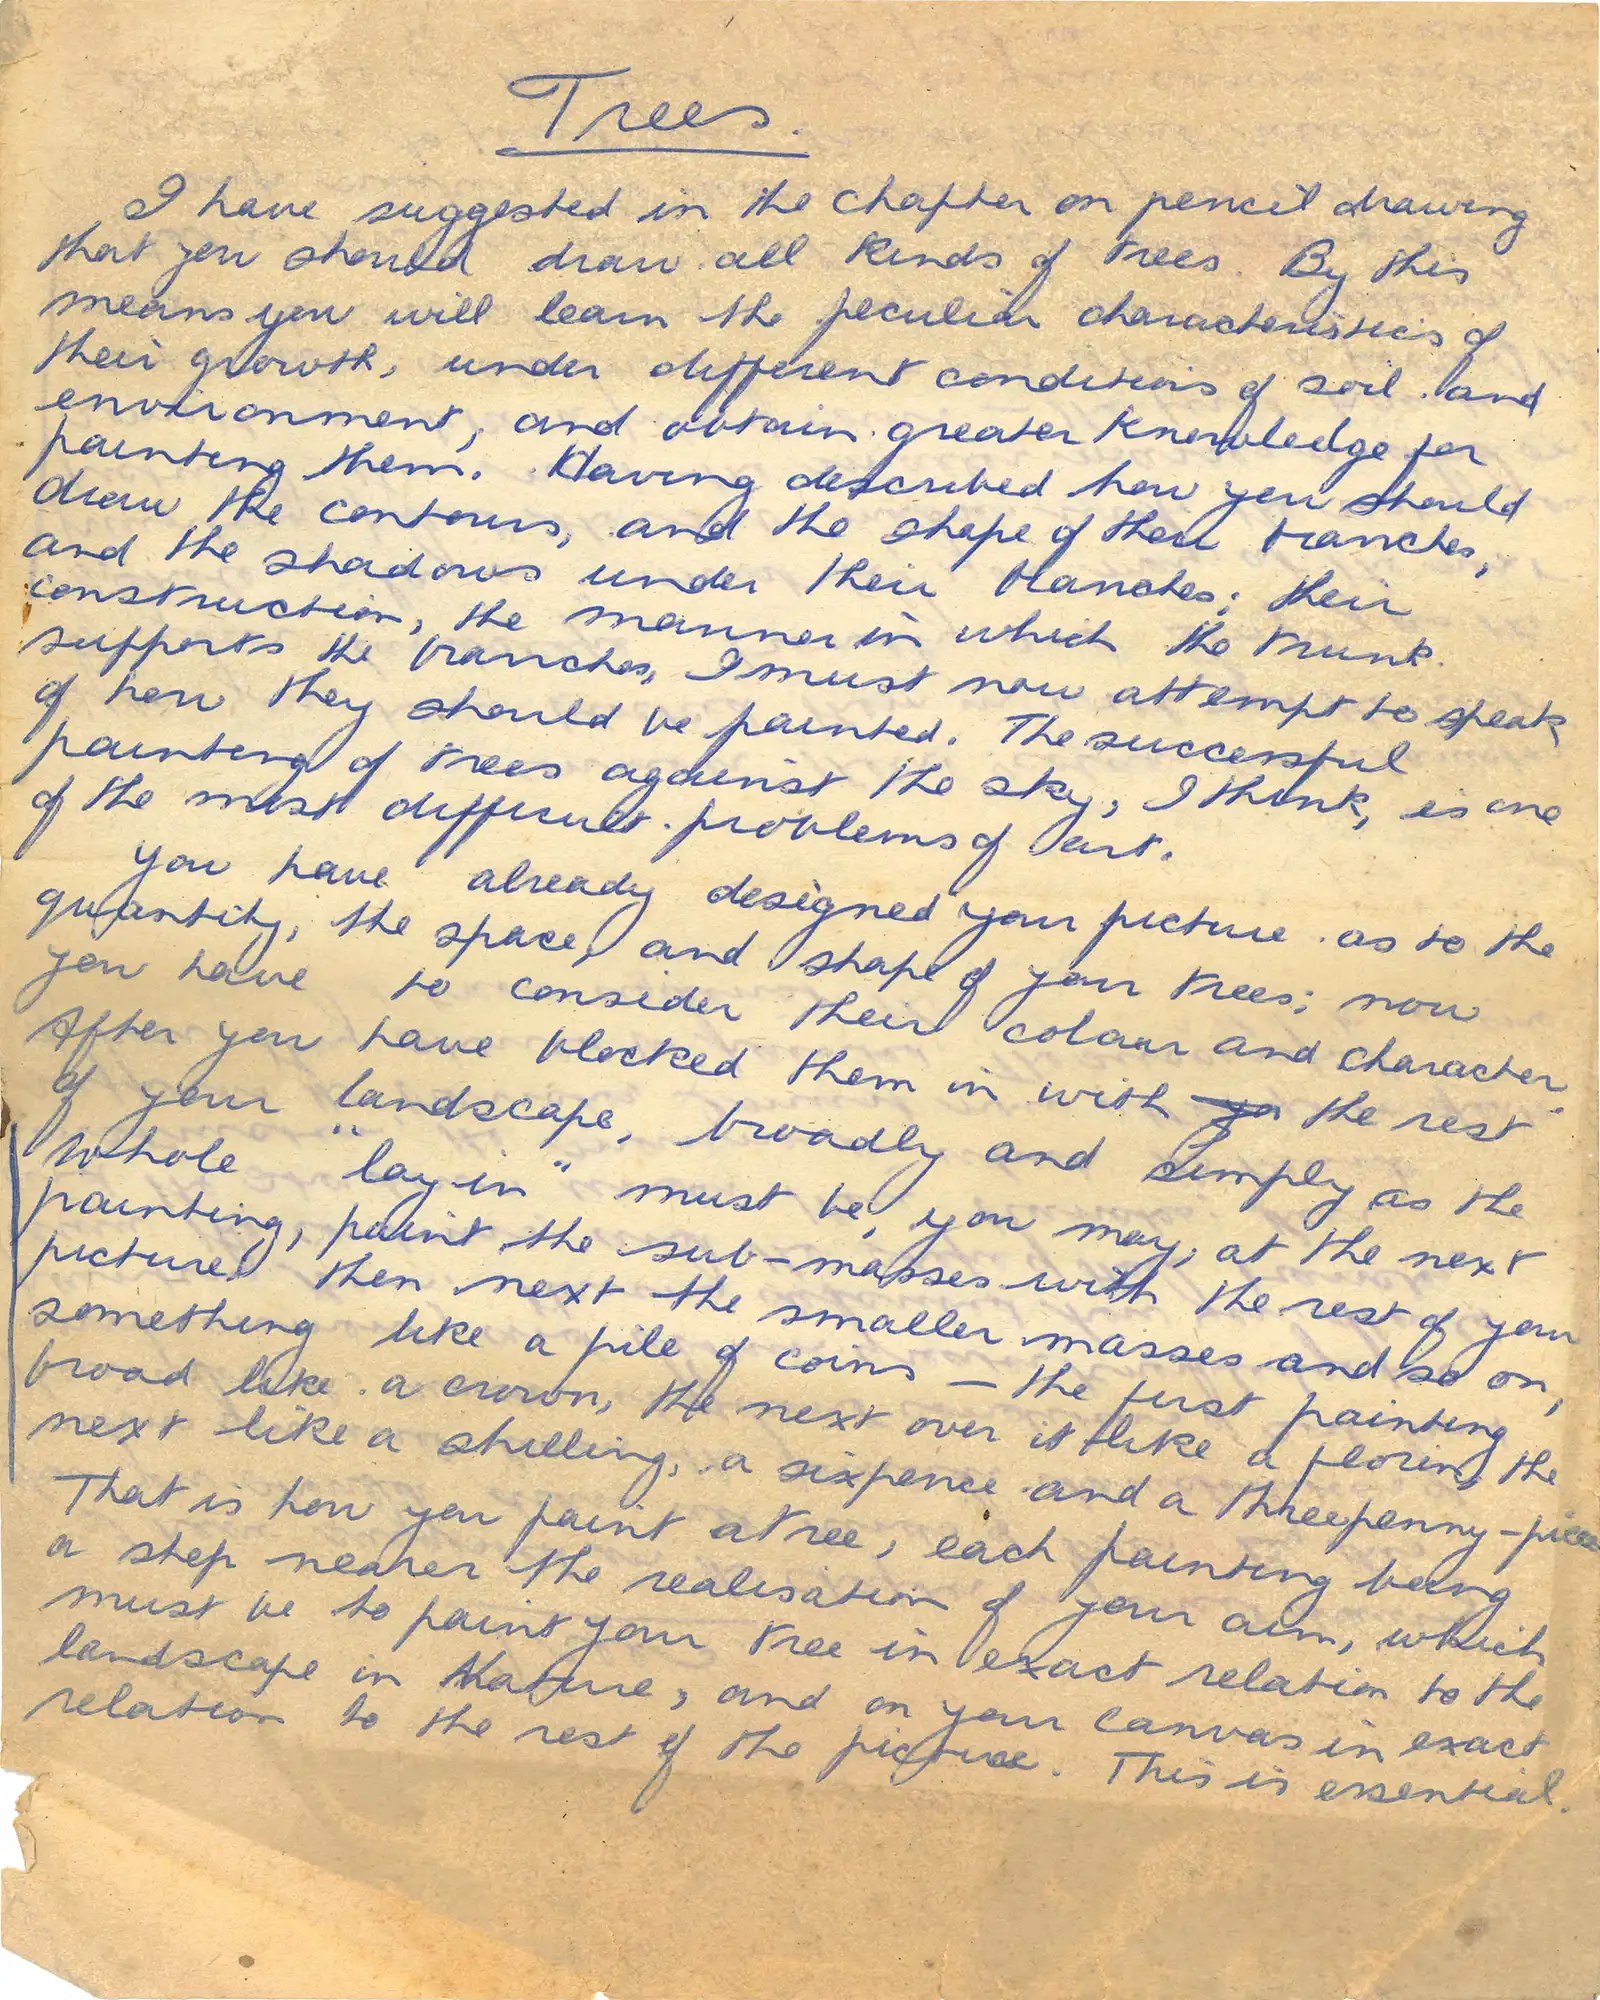 Trees.
I have suggested in the chapter on pencil drawing
that you should draw all kinds of trees. By this
means you will learn the peculiar characteristics of
their growth, under different conditions of soil and
environment, and obtain greater knowledge for
painting them. Having described how you should
draw the contours, and the shape of their branches,
and the shadows under their branches; their
construction, the manner in which the trunk
supports the branches, I must now attempt to speak
of how they should be painted. The successful
painting of trees against the sky, I think, is one
of the most difficult problems of art.
You have already designed your picture as to the
quantity, the space, and shape of your trees; now
you have to consider their colour and character.
After you have blocked them in with yo the rest
of your landscape, broadly and simply as the
whole "lay-in" must be, you may, at the next
painting, paint the sub-masses with the rest of your
picture, then next the smaller masses and so on,
something like a pile of coins – the first painting
broad like a crown, the next over it like a florin, the
next like a shilling, a sixpence and a threepenny-piece
That is how you paint a tree, each painting being
a step nearer the realisation of your aim, which
must be to paint your tree in exact relation to the
landscape in Nature, and on your canvas in exact
relation to the rest of the picture. This is essential.